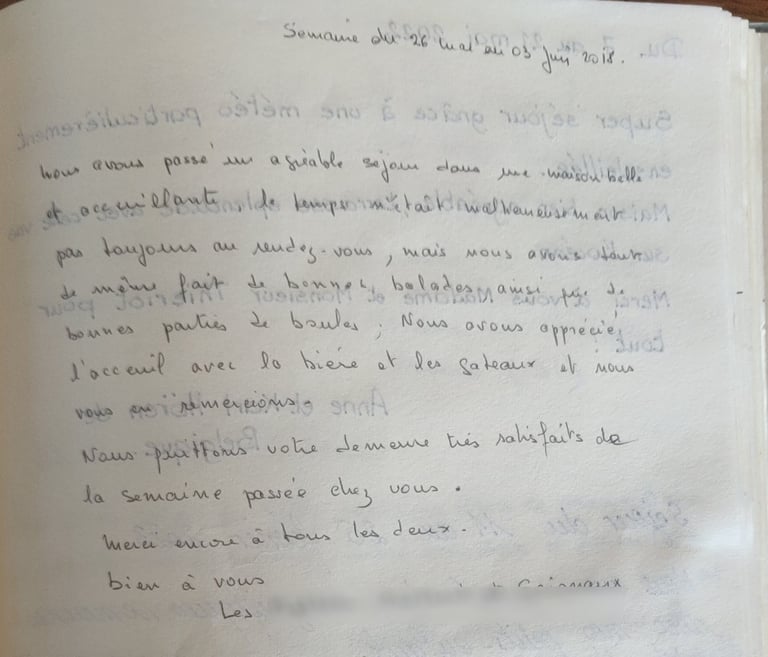 Semaine du 26 mai au 03 juin 2018.
Nous avons passé un agréable séjour dans une maison belle
et accueillante, le temps n'était malheureusement
pas toujours au rendez-vous, mais nous avons tout
de même fait de bonnes balades ainsi que de
bonnes parties de boules; Nous avons apprécié
l'acceuil avec la bière et les gateaux et nous
vous en remercions.
Nous quittons votre demeure très satisfaits de
la semaine passée chez vous.
Merci encore à tous les deux.
bien à vous
Les